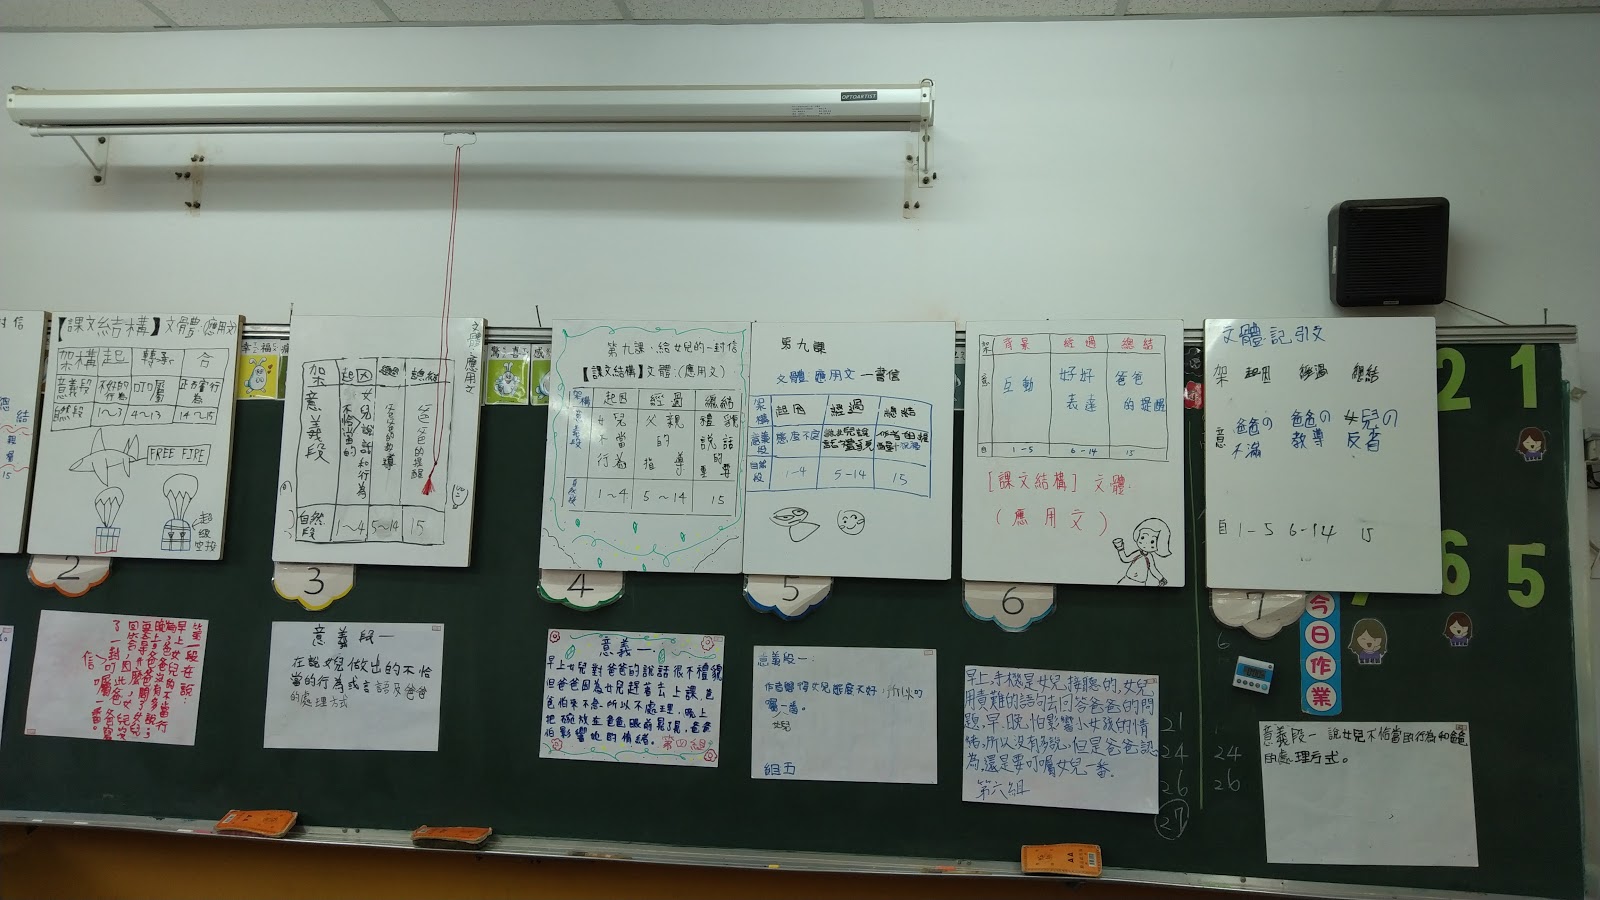 OPTOARTIST
【課文結構】文體:(應用文)
架構 起 轉承 合
意義段 不好的行為 叮嚀
自然段 1~3 4~13 14~15
FREE FIRE
超級空投
文體:應用文
架 起因 經過 總結
意義段 女兒不恰當的說話和行為 爸爸的教導 爸爸的提醒
自然段 1~4 5~14 15
第九課、給女兒的一封信
【課文結構】文體:(應用文)
架構 起因 經過 總結
意義段 女兒不當行為 父親的指導 禮貌說話的重要
自然段 1~4 5~14 15
第九課
文體:應用文—書信
架構 起因 經過 總結
意義段 態度不定
自然段 1-4 5-14 15
架 背景 經過 總結
意 互動 好好表達 爸爸的提醒
自 1-5 6-14 15
[課文結構] 文體:
(應用文)
文體:記.引文
架 起因 經過 總結
意 爸爸の不滿 爸爸の教導 女兒の反省
自 1-5 6-14 15
2
3
4
5
6
7
2 1
7 6 5
今日作業
第一段在說:
早上女兒的不當行
為,爸爸沒有多說;
了一封叮嚀
信
意義段一
在說女兒做出的不恰
當的行為或言語及爸爸
的處理方式
意義一
早上女兒對爸爸的說話很不禮貌
但爸爸因為女兒趕著去上課,爸
爸怕來不急所以不處理,晚上
把碗放在爸爸眼前晃了晃,爸爸
怕影響她的情緒。 第四組
意義段一:
作者覺得女兒態度不好,所以叮
嚀一番。
組五
早上,手機是女兒接聽的,女兒
用責難的語句去回答爸爸的問
題,早、晚,怕影響小女孩的情
緒,所以沒有多說,但是爸爸認
為,還是要叮嚀女兒一番.
第六組
意義段一 說女兒不恰當的行為和爸爸
的處理方式。
6
21
24 24
26 26
27